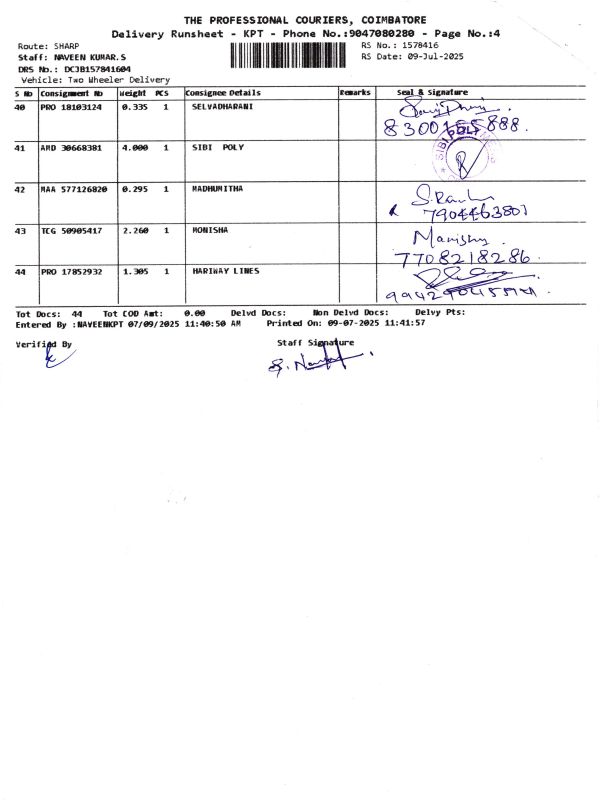 THE PROFESSIONAL COURIERS, COIMBATORE
Delivery Runsheet - KPT - Phone No.:9047080280 - Page No.:4
Route: SHARP
RS No.: 1578416
Staff: NAVEEN KUMAR.S
RS Date: 09-Jul-2025
DRS No.: DCJB157841604
Vehicle: Two Wheeler Delivery
S No Consignment No Weight PCS Consignee Details Remarks Seal & Signature
40 PRO 18103124 0.335 1 SELVADHARANI
8300155888.
41 AMD 30668381 4.000 1 SIBI POLY
SIBI POLY
42 MAA 577126820 0.295 1 MADHUMITHA
7904463807
43 TCG 50905417 2.260 1 MONISHA
7708218286.
44 PRO 17852932 1.305 1 HARIWAY LINES
Tot Docs: 44 Tot COD Amt: 0.00 Delvd Docs: Non Delvd Docs: Delvy Pts:
Entered By :NAVEENKPT 07/09/2025 11:40:50 AM Printed On: 09-07-2025 11:41:57
Verified By Staff Signature